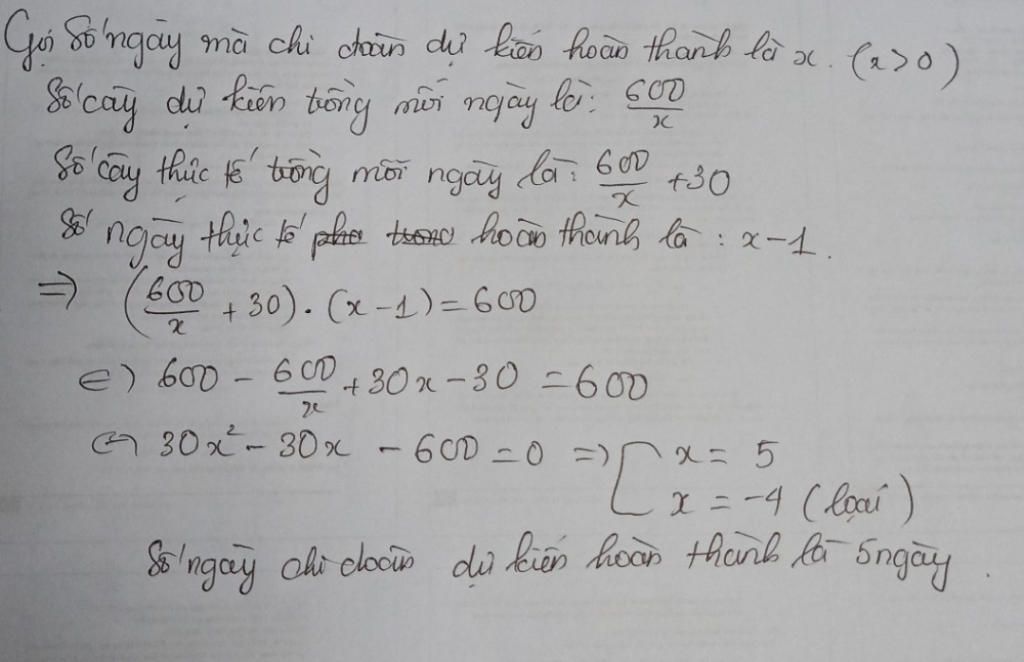 Gọi Số ngày mà chi đoàn dự kiến hoàn thành là x. (x>0)
Số cây dự kiến trồng mỗi ngày là: 600/x
Số cây thực tế trồng mỗi ngày là: 600/x +30
Số ngày thực tế hoàn thành là : x-1.
=> (600/x + 30).(x-1)=600
<=> 600 - 600/x +30x-30 =600
<=> 30x² - 30x - 600 =0 => [ x= 5
x = -4 (loại)
Số ngày chi đoàn dự kiến hoàn thành là 5 ngày.